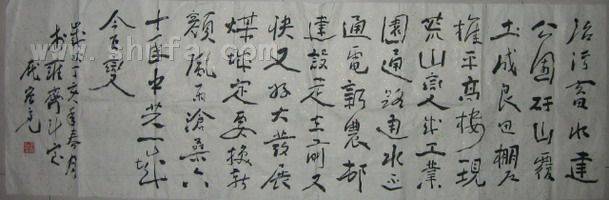 治污畜水建
公园矸山覆
土成良田棚户
推平高楼现
荒山变成工业
园通路通水正
通电新农邨
建设走在前又
快又好大发展
煤城定要换新
颜风雨沧桑六
十年中芝一城
今巨变
岁次丁亥年春月